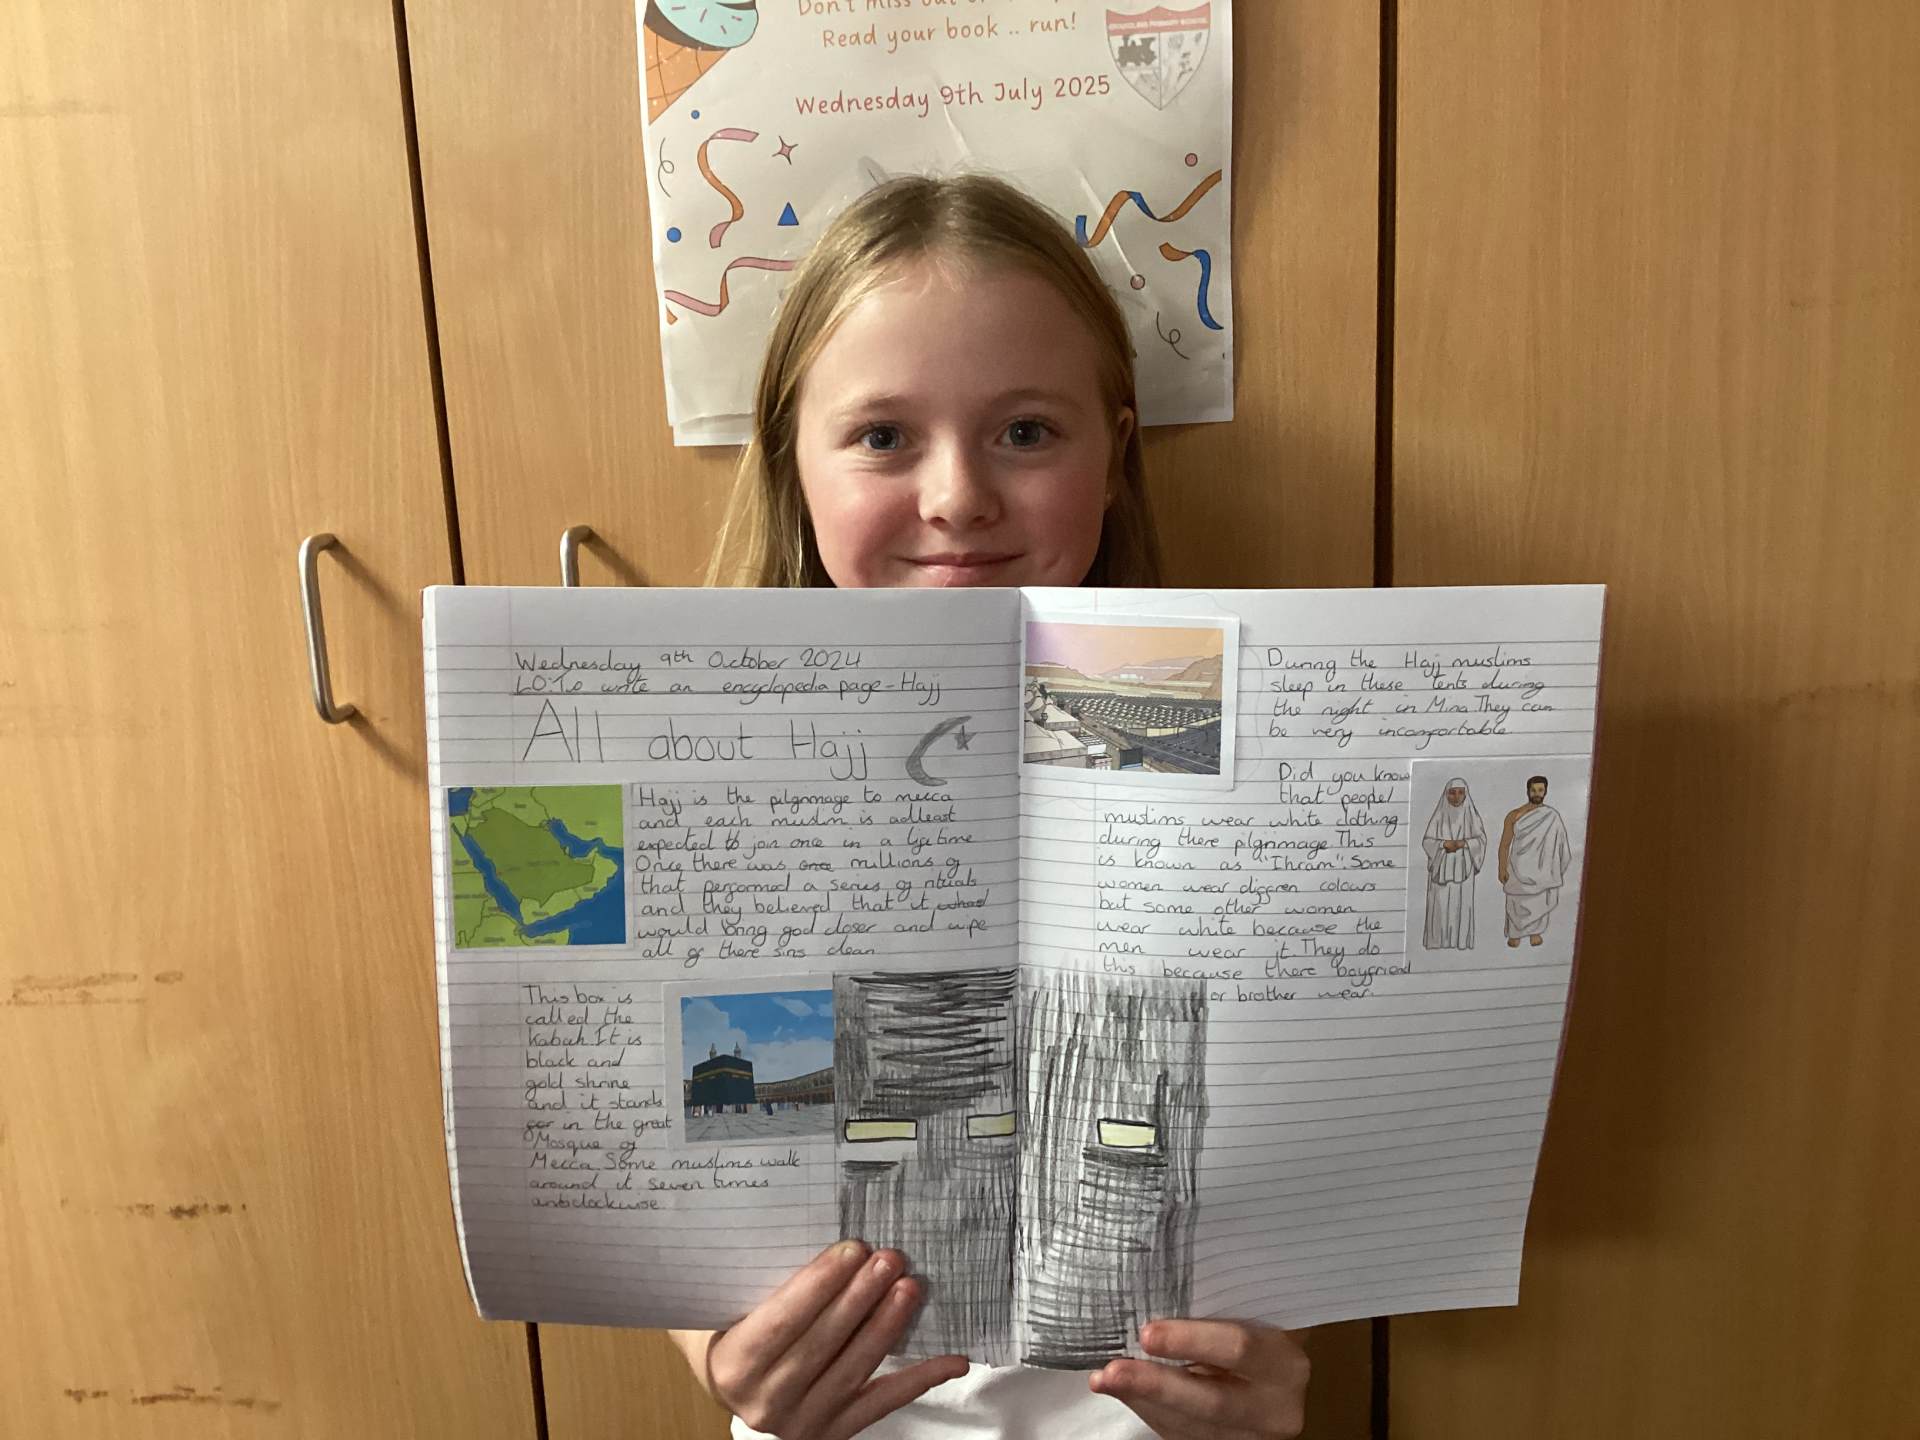 Don't miss out
Read your book .. run!
Wednesday 9th July 2025
PRIMARY SCHOOL
Wednesday 9th October 2024
LO:To write an encyclopedia page - Hajj
All about Hajj
Hajj is the pilgrimage to mecca
and each muslim is adleast
expected to join once in a lifetime
Once there was once millions of
that performed a series of rituals
and they believed that it
would bring god closer and wipe
all of there sins clean
This box is
called the
Kabah It is
black and
gold shrine
and it stands
for in the great
Mosque of
Mecca. Some muslims walk
around it seven times
anticlockwise.
During the Hajj muslims
sleep in these tents during
the night in Mina They can
be very incomfortable.
Did you know
that people/
muslims wear white clothing
during there pilgrimage. This
is known as "Ihram". Some
women wear differen colours
but some other women
wear white because the
men wear it. They do
this because there boyfriend
or brother wear.